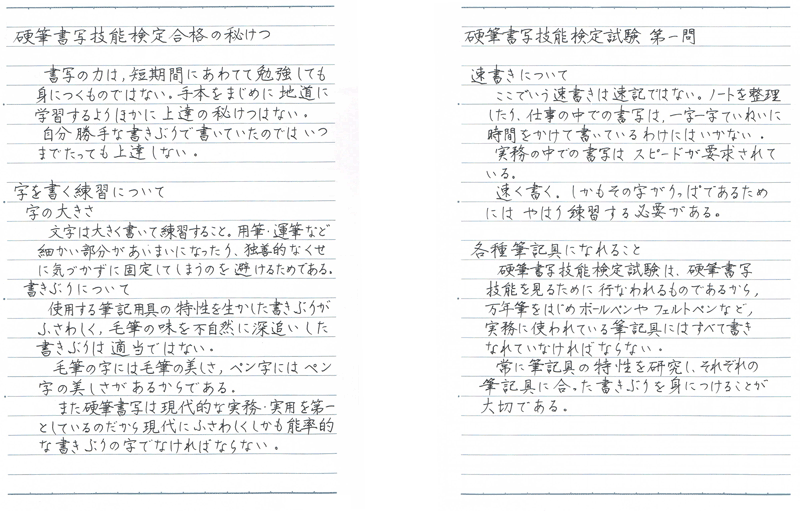 硬筆書写技能検定合格の秘けつ
書写の力は、短期間にあわてて勉強しても
身につくものではない。手本をまじめに地道に
学習するよりほかに上達の秘けつはない。
自分勝手な書きぶりで書いていたのではいつ
までたっても上達しない。
字を書く練習について
字の大きさ
文字は大きく書いて練習すること。用筆・運筆など
細かい部分があいまいになったり、独善的なくせ
に気づかずに固定してしまうのを避けるためである。
書きぶりについて
使用する筆記用具の特性を生かした書きぶりが
ふさわしく、毛筆の味を不自然に深追いした
書きぶりは適当ではない。
毛筆の字には毛筆の美しさ、ペン字にはペン
字の美しさがあるからである。
また硬筆書写は現代的な実務・実用を第一
としているのだから現代にふさわしくしかも能率的
な書きぶりの字でなければならない。
硬筆書写技能検定試験 第一問
速書きについて
ここでいう速書きは速記ではない。ノートを整理
したり、仕事の中での書写は、一字一字ていねいに
時間をかけて書いているわけにはいかない。
実務の中での書写はスピードが要求されて
いる。
速く書く。しかもその字がりっぱであるため
にはやはり練習する必要がある。
各種筆記具になれること
硬筆書写技能検定試験は、硬筆書写
技能を見るために行なわれるものであるから、
万年筆をはじめボールペンやフェルトペンなど、
実務に使われている筆記具にはすべて書き
なれていなければならない。
常に筆記具の特性を研究し、それぞれの
筆記具に合った書きぶりを身につけることが
大切である。